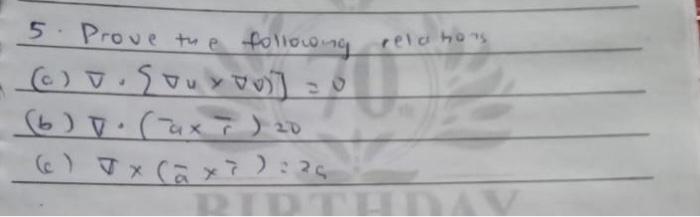 5. Prove the following relations
(c) ∇ . {∇u × ∇v)] = 0
(b) ∇ . (a̅ × r̅ ) = 0
(c) ∇ × (a̅ × r̅ ) = 2a
70
BIRTHDAY